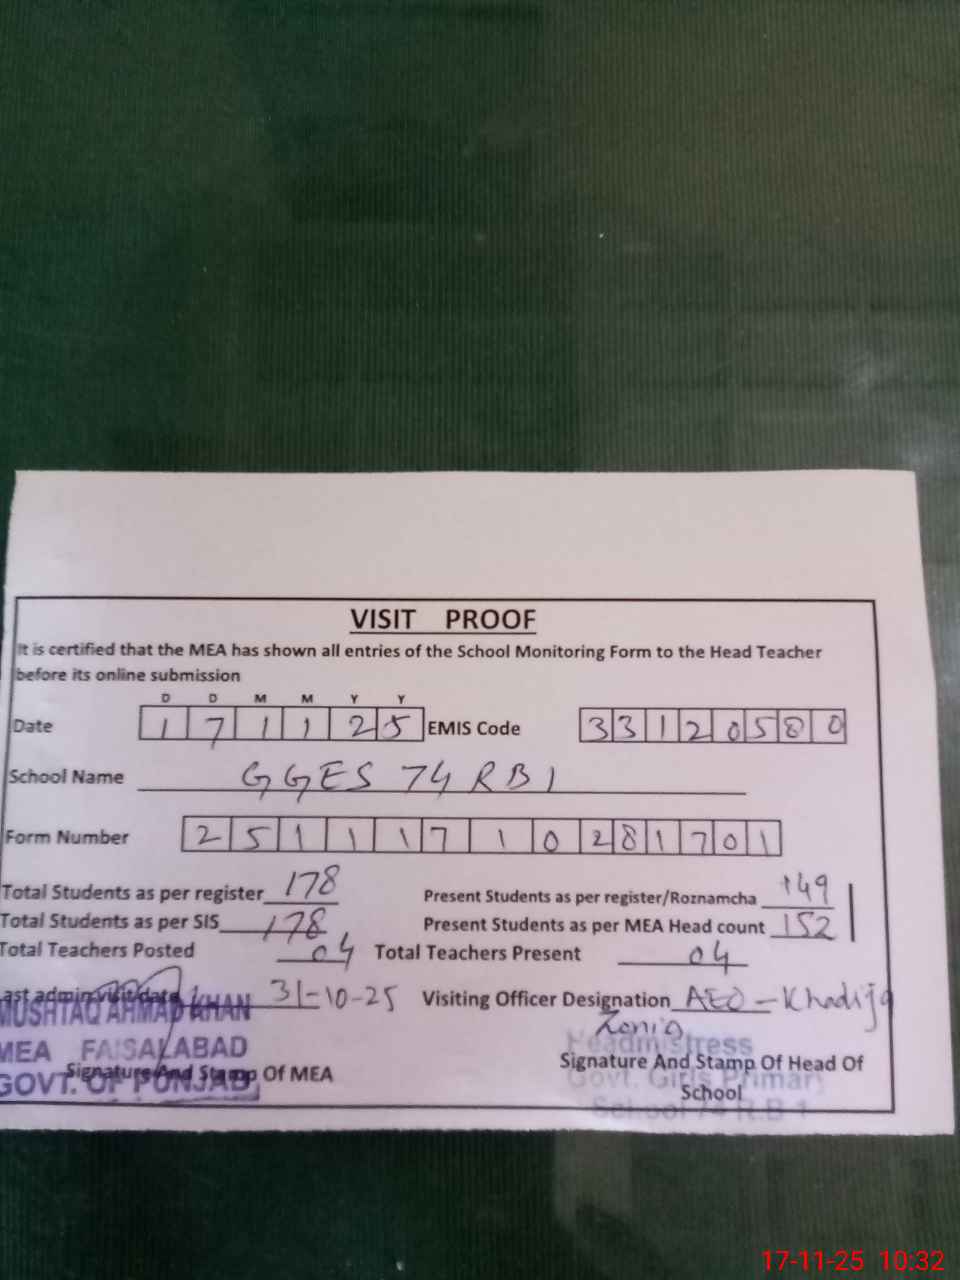 VISIT PROOF
It is certified that the MEA has shown all entries of the School Monitoring Form to the Head Teacher
before its online submission
D D M M Y Y
Date 1 7 1 1 2 5 EMIS Code 3 3 1 2 0 5 8 0
School Name GGES 74 RB 1
Form Number 2 5 1 1 1 7 1 0 2 8 1 7 0 1
Total Students as per register 178 Present Students as per register/Roznamcha 149
Total Students as per SIS 178 Present Students as per MEA Head count 152
Total Teachers Posted 04 Total Teachers Present 04
Last admin visit date 31-10-25 Visiting Officer Designation AEO - Khadija
MUSHTAQ AHMAD KHAN
MEA FAISALABAD
GOVT. OF PUNJAB
Signature And Stamp Of MEA
Zonia
Headmistress
Govt. Girls Primary
School 74 R.B 1
Signature And Stamp Of Head Of
School
17-11-25 10:32